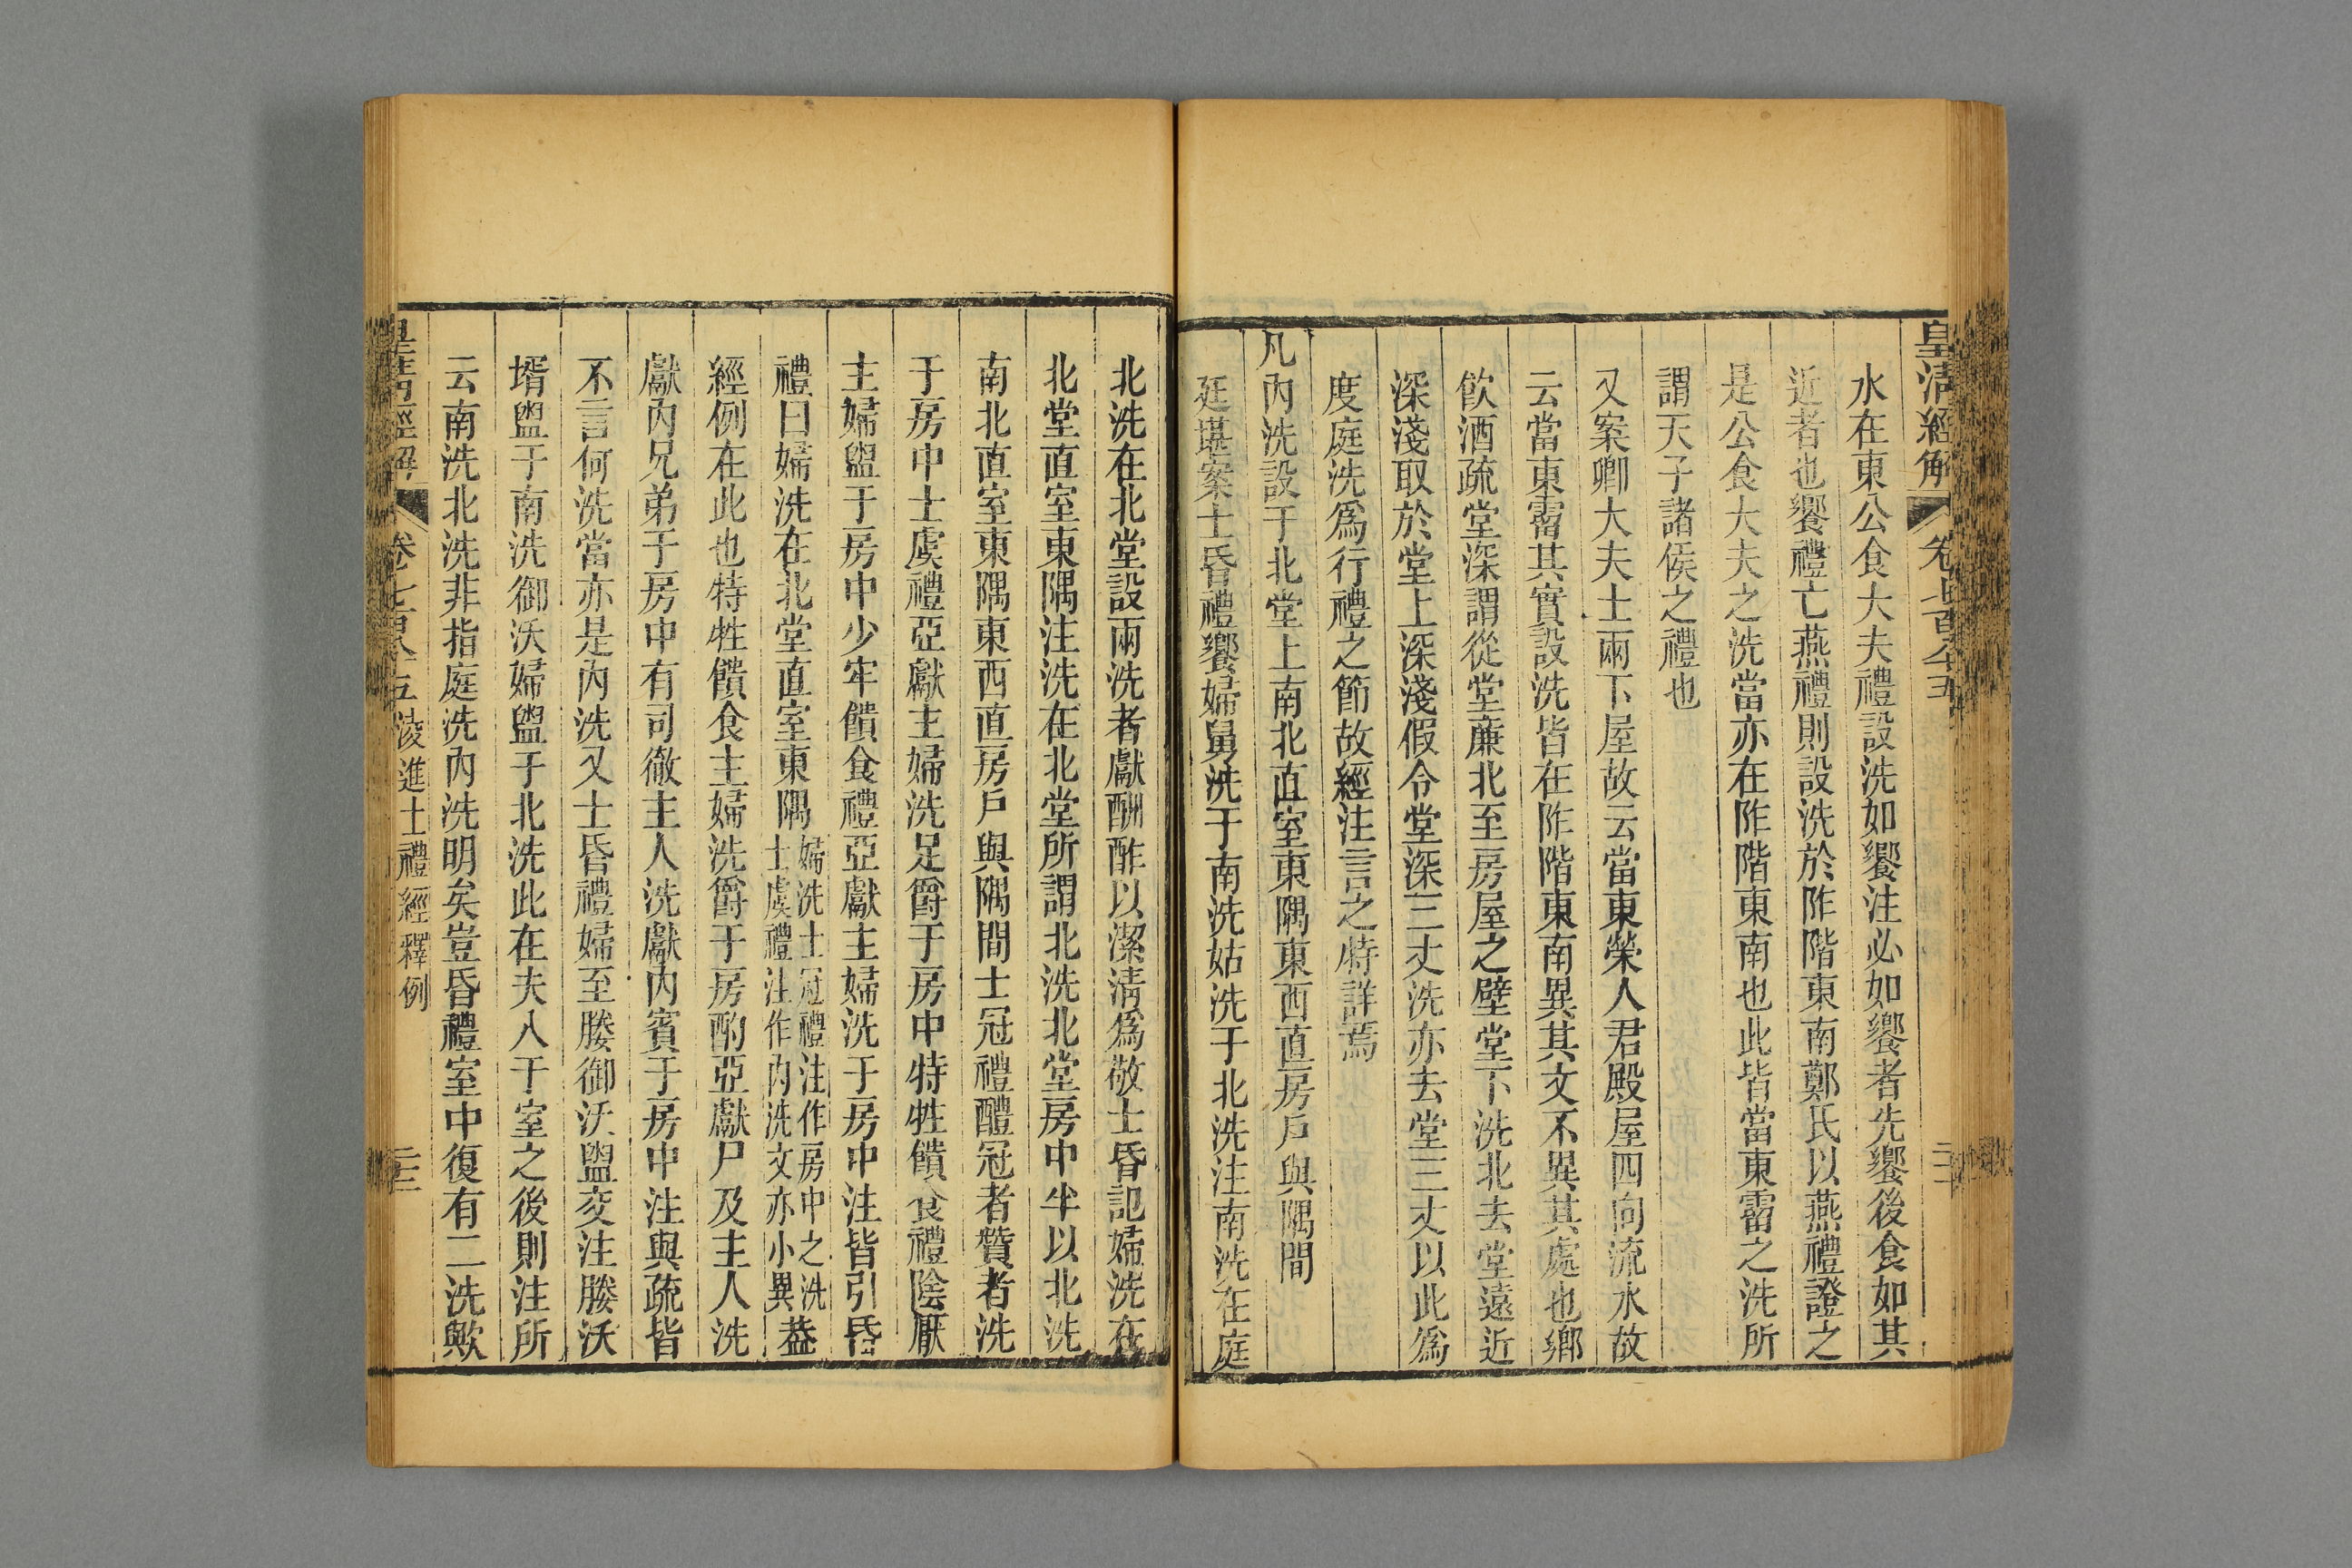 皇清經解 卷七百八十五
水在東公食大夫禮設洗如饗注必如饗者先饗後食如其
近者也饗禮亡燕禮則設洗於阼階東南鄭氏以燕禮證之
是公食大夫之洗當亦在阼階東南也此皆當東霤之洗所
謂天子諸侯之禮也
又案卿大夫士兩下屋故云當東榮人君殿屋四向流水故
云當東霤其實設洗皆在阼階東南異其文不異其處也鄉
飲酒疏堂深謂從堂廉北至房屋之壁堂下洗北去堂遠近
深淺取於堂上深淺假令堂深三丈洗亦去堂三丈以此爲
度庭洗爲行禮之節故經注言之特詳焉
凡內洗設于北堂上南北直室東隅東西直房戶與隅間
廷堪案士昏禮饗婦舅洗于南洗姑洗于北洗注南洗在庭
北洗在北堂設兩洗者獻酬酢以潔清爲敬士昏記婦洗在
北堂直室東隅注洗在北堂所謂北洗北堂房中半以北洗
南北直室東隅東西直房戶與隅間士冠禮醴冠者贊者洗
于房中士虞禮亞獻主婦洗足爵于房中特牲饋食禮陰厭
主婦盥于房中少牢饋食禮亞獻主婦洗于房中注皆引昏
禮曰婦洗在北堂直室東隅婦洗士冠禮注作房中之洗士虞禮注作內洗文亦小異葢
經例在此也特牲饋食主婦洗爵于房酌亞獻尸及主人洗
獻內兄弟于房中有司徹主人洗獻內賓于房中注與疏皆
不言何洗當亦是內洗又士昏禮婦至媵御沃盥交注媵沃
壻盥于南洗御沃婦盥于北洗此在夫入于室之後則注所
云南洗北洗非指庭洗內洗明矣豈昏禮室中復有二洗歟
皇清經解 卷七百八十五 凌進士禮經釋例 二十三